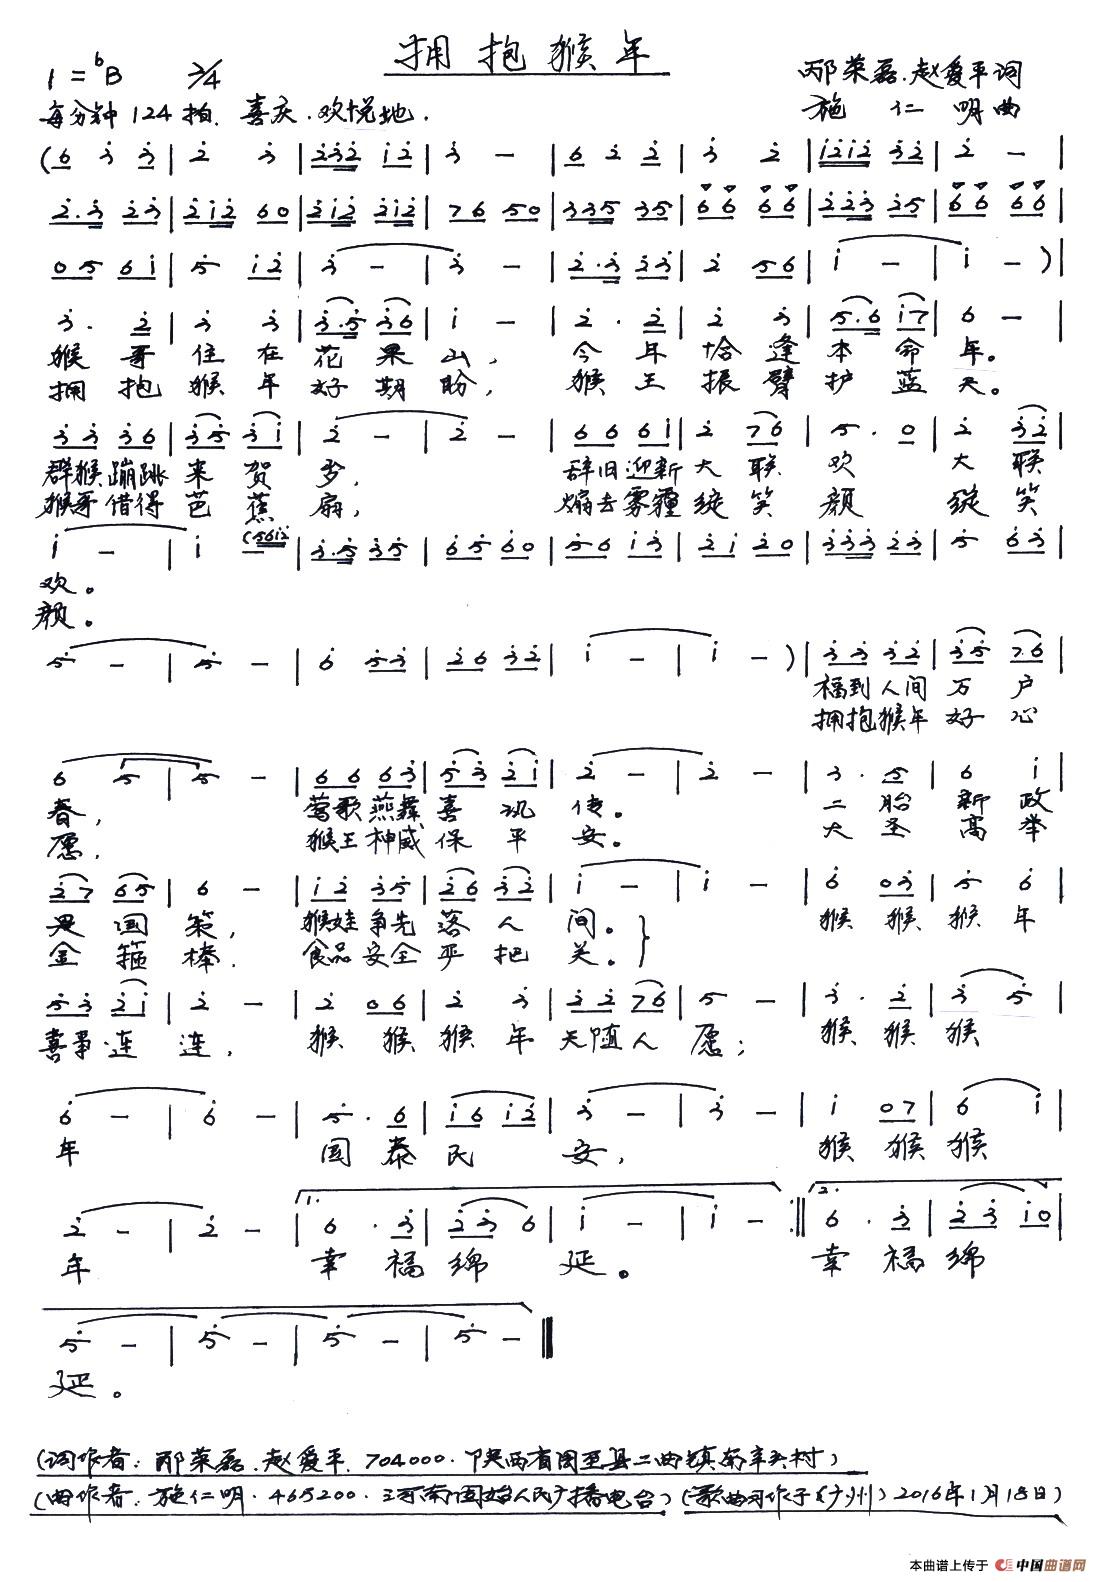 拥抱猴年
1=bB 2/4
邴荣磊.赵爱平词
每分钟124拍.喜庆.欢悦地.
施仁明曲
猴哥住在花果山,今年恰逢本命年。
拥抱猴年好期盼,猴王振臂护蓝天。
群猴蹦跳来贺岁,辞旧迎新大联欢大联
猴哥借得芭蕉扇,煽去雾霾绽笑颜绽笑
欢。
颜。
福到人间万户
拥抱猴年好心
春,莺歌燕舞喜讯传。二胎新政
愿,猴王神威保平安。大圣高举
是国策,猴娃争先落人间。猴猴猴年
金箍棒.食品安全严把关。
喜事连连,猴猴猴年天随人愿;猴猴猴
年国泰民安,猴猴猴
1.
2.
年幸福绵延。幸福绵
延。
(词作者:邴荣磊.赵爱平.704000.陕西省周至县二曲镇南辛头村)
(曲作者.施仁明.465200.河南固始人民广播电台)(歌曲习作于广州)2016年1月18日)
本曲谱上传于 中国曲谱网